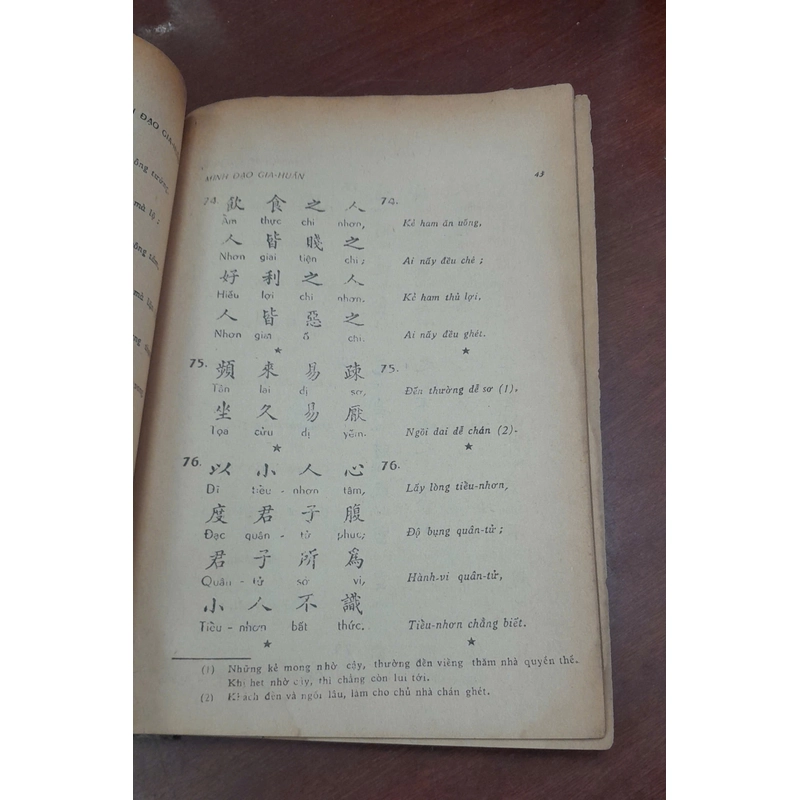 ĐẠO GIA-HUẤN
ông tường,
mà lộ ;
MINH ĐẠO GIA-HUẤN
43
74. 飲 食 之 人
Ẩm thực chi nhơn,
人 皆 賤 之
Nhơn giai tiện chi ;
好 利 之 人
Hiếu lợi chi nhơn.
人 皆 惡 之
Nhơn giai ố chi.
★
74.
Kẻ ham ăn uống,
Ai nấy đều chê ;
Kẻ ham thủ lợi,
Ai nấy đều ghét.
★
75. 頻 來 易 疎
Tần lai dị sơ,
坐 久 易 厭
Tọa cửu dị yếm.
★
75.
Đến thường dễ sơ (1).
Ngồi dai dễ chán (2).
★
76. 以 小 人 心
Dĩ tiểu - nhơn tâm,
度 君 子 腹
Đạc quân - tử phục;
君 子 所 為
Quân - tử sở vi,
小 人 不 識
Tiểu - nhơn bất thức.
★
76.
Lấy lòng tiểu-nhơn,
Độ bụng quân-tử ;
Hành-vi quân-tử,
Tiểu-nhơn chẳng biết.
★
(1) Những kẻ mong nhờ cậy, thường đến viếng thăm nhà quyền thế.
Khi hết nhờ cậy, thì chẳng còn lui tới.
(2) Khách đến và ngồi lâu, làm cho chủ nhà chán ghét.